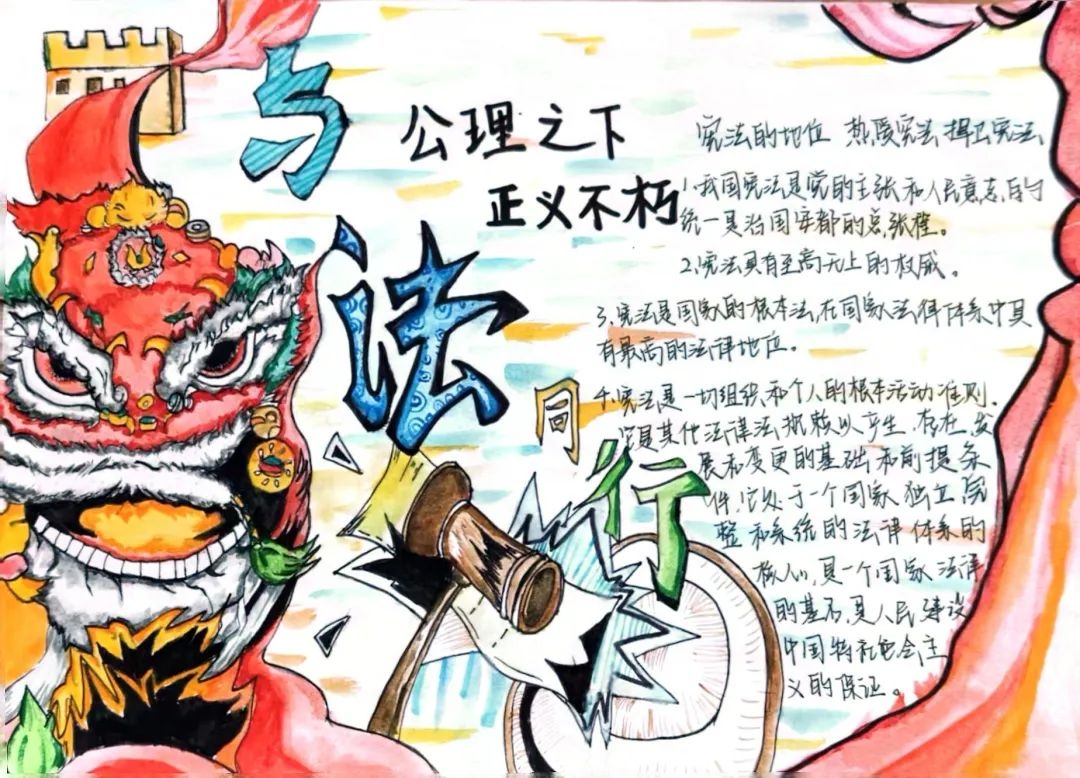 与
法
同
行
公理之下
正义不朽
宪法的地位 热爱宪法 捍卫宪法
1.我国宪法是党的主张和人民意志的
统一是治国安邦的总张程。
2.宪法具有至高无上的权威。
3.宪法是国家的根本法,在国家法律体系中具
有最高的法律地位。
4.宪法是一切组织和个人的根本活动准则.
它是其他法律法规赖以产生.存在.发
展和变更的基础和前提条
件.它处于一个国家独立.完
整和系统的法律体系的
核心,是一个国家法律
的基石,是人民建设
中国特社会主
义的保证。